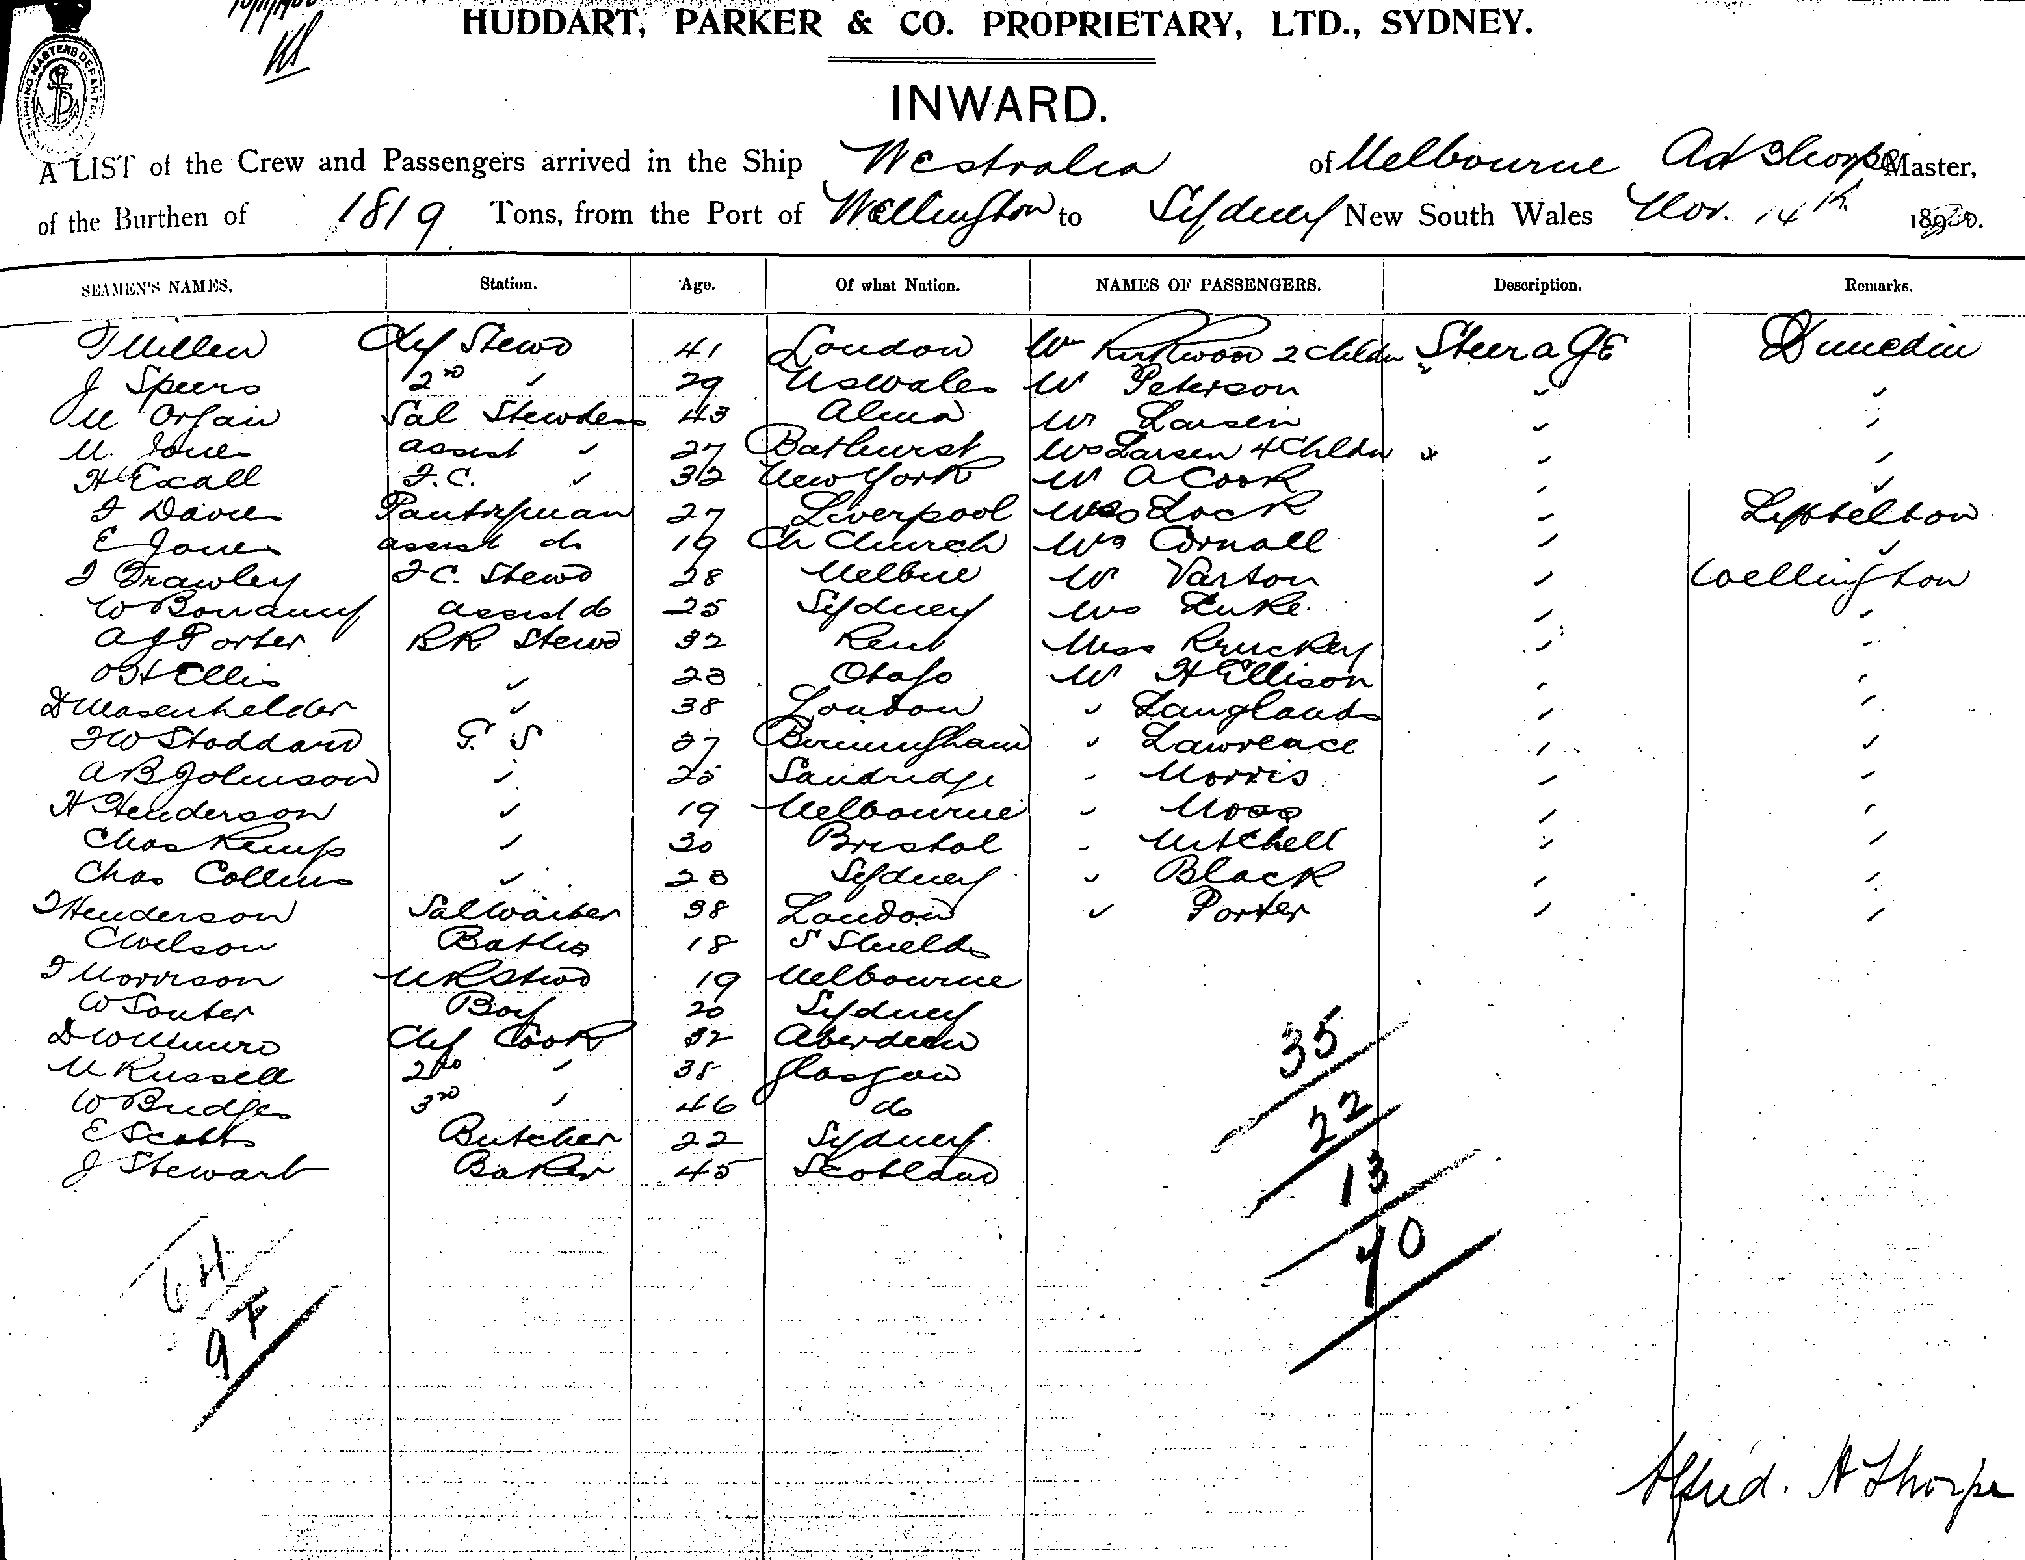 HUDDART, PARKER & CO. PROPRIETARY, LTD., SYDNEY.
INWARD.
A LIST of the Crew and Passengers arrived in the Ship Westralia of Melbourne Ad Thorpe Master,
of the Burthen of 1819 Tons, from the Port of Wellington to Sydney New South Wales Nov. 14th
SEAMEN'S NAMES. Station. Age. Of what Nation. NAMES OF PASSENGERS. Description. Remarks.
J Millen Chf Stewd 41 London Mr Kirkwood 2 Childn Steerage Dunedin
J Speers 2nd " 29 NSWales Mr Peterson " "
M Organ Sal Stewdess 43 Alma Mr Larsen " "
M. Jones assist " 27 Bathurst Mrs Larsen 4 Childn " "
H Exall F.C. " 32 New York Mr A Cook " "
J Davies Pantryman 27 Liverpool Lock " Lyttelton
E Jones assist do 19 Ch Church Mrs Cornall " "
J Frawley F.C. Stewd 28 Melbne Mr Varton " Wellington
W Bonamy assist do 25 Sydney Mrs Luke " "
A J Porter BR Stewd 32 Kent Miss Kruckey " "
Ellis " 23 Otago Mr H Ellison " "
D Masenhelder " 38 London " Langlands " "
J W Stoddard G. S 37 Birmingham " Lawrence " "
A B Johnson " 25 Sandridge " Morris " "
H Henderson " 19 Melbourne " Moss " "
Chas Kemp " 30 Bristol " Mitchell " "
Chas Collins " 23 Sydney " Black " "
J Henderson Sal Waiter 38 London " Porter " "
C Wilson Baths 18 S Shields
J Morrison MR Stwd 19 Melbourne
W Souter Boy 20 Sydney
D W Munro Chf Cook 32 Aberdeen
M Russell 2nd " 38 Glasgow
W Bridges 3rd " 46 do
E Scott Butcher 22 Sydney
J Stewart Baker 45 Scotland
35
22
13
70
64
9 F
Alfred. A Thorpe